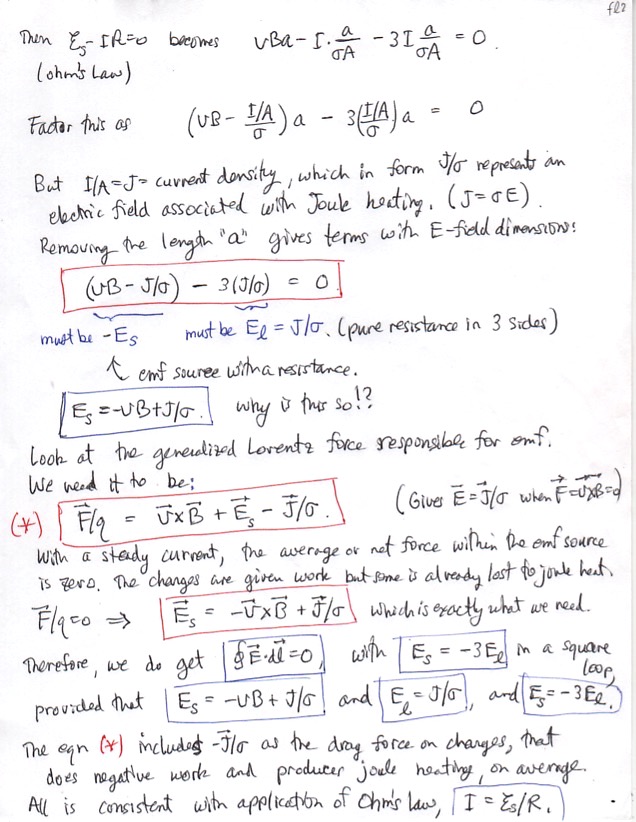 fl2
Then ℰs - IR=0 becomes vBa - I·a/σA - 3I a/σA = 0.
(ohm's Law)
Factor this as (vB - (I/A)/σ) a - 3((I/A)/σ) a = 0
But I/A = J = current density, which in form J/σ represents an
electric field associated with Joule heating. (J=σE).
Removing the length "a" gives terms with E-field dimensions:
(vB - J/σ) - 3(J/σ) = 0
must be -Es must be Eℓ = J/σ. (pure resistance in 3 sides)
↑ emf source with a resistance.
Es = -vB+J/σ. why is this so!?
Look at the generalized Lorentz force responsible for emf.
We need it to be:
(*) F⃗/q = v⃗×B⃗ + E⃗s - J⃗/σ. (Gives E⃗ = J⃗/σ when F⃗=v⃗×B⃗=0)
With a steady current, the average or net force within the emf source
is zero. The charges are given work but some is already lost to joule heat.
F⃗/q=0 ⇒ E⃗s = -v⃗×B⃗ + J⃗/σ which is exactly what we need.
Therefore, we do get ∮E⃗·dl⃗=0, with Es = -3Eℓ in a square
loop,
provided that Es = -vB + J/σ and Eℓ = J/σ, and Es = -3Eℓ.
The eqn (*) includes -J⃗/σ as the drag force on charges, that
does negative work and produces joule heating, on average.
All is consistent with application of Ohm's law, I = ℰs/R.